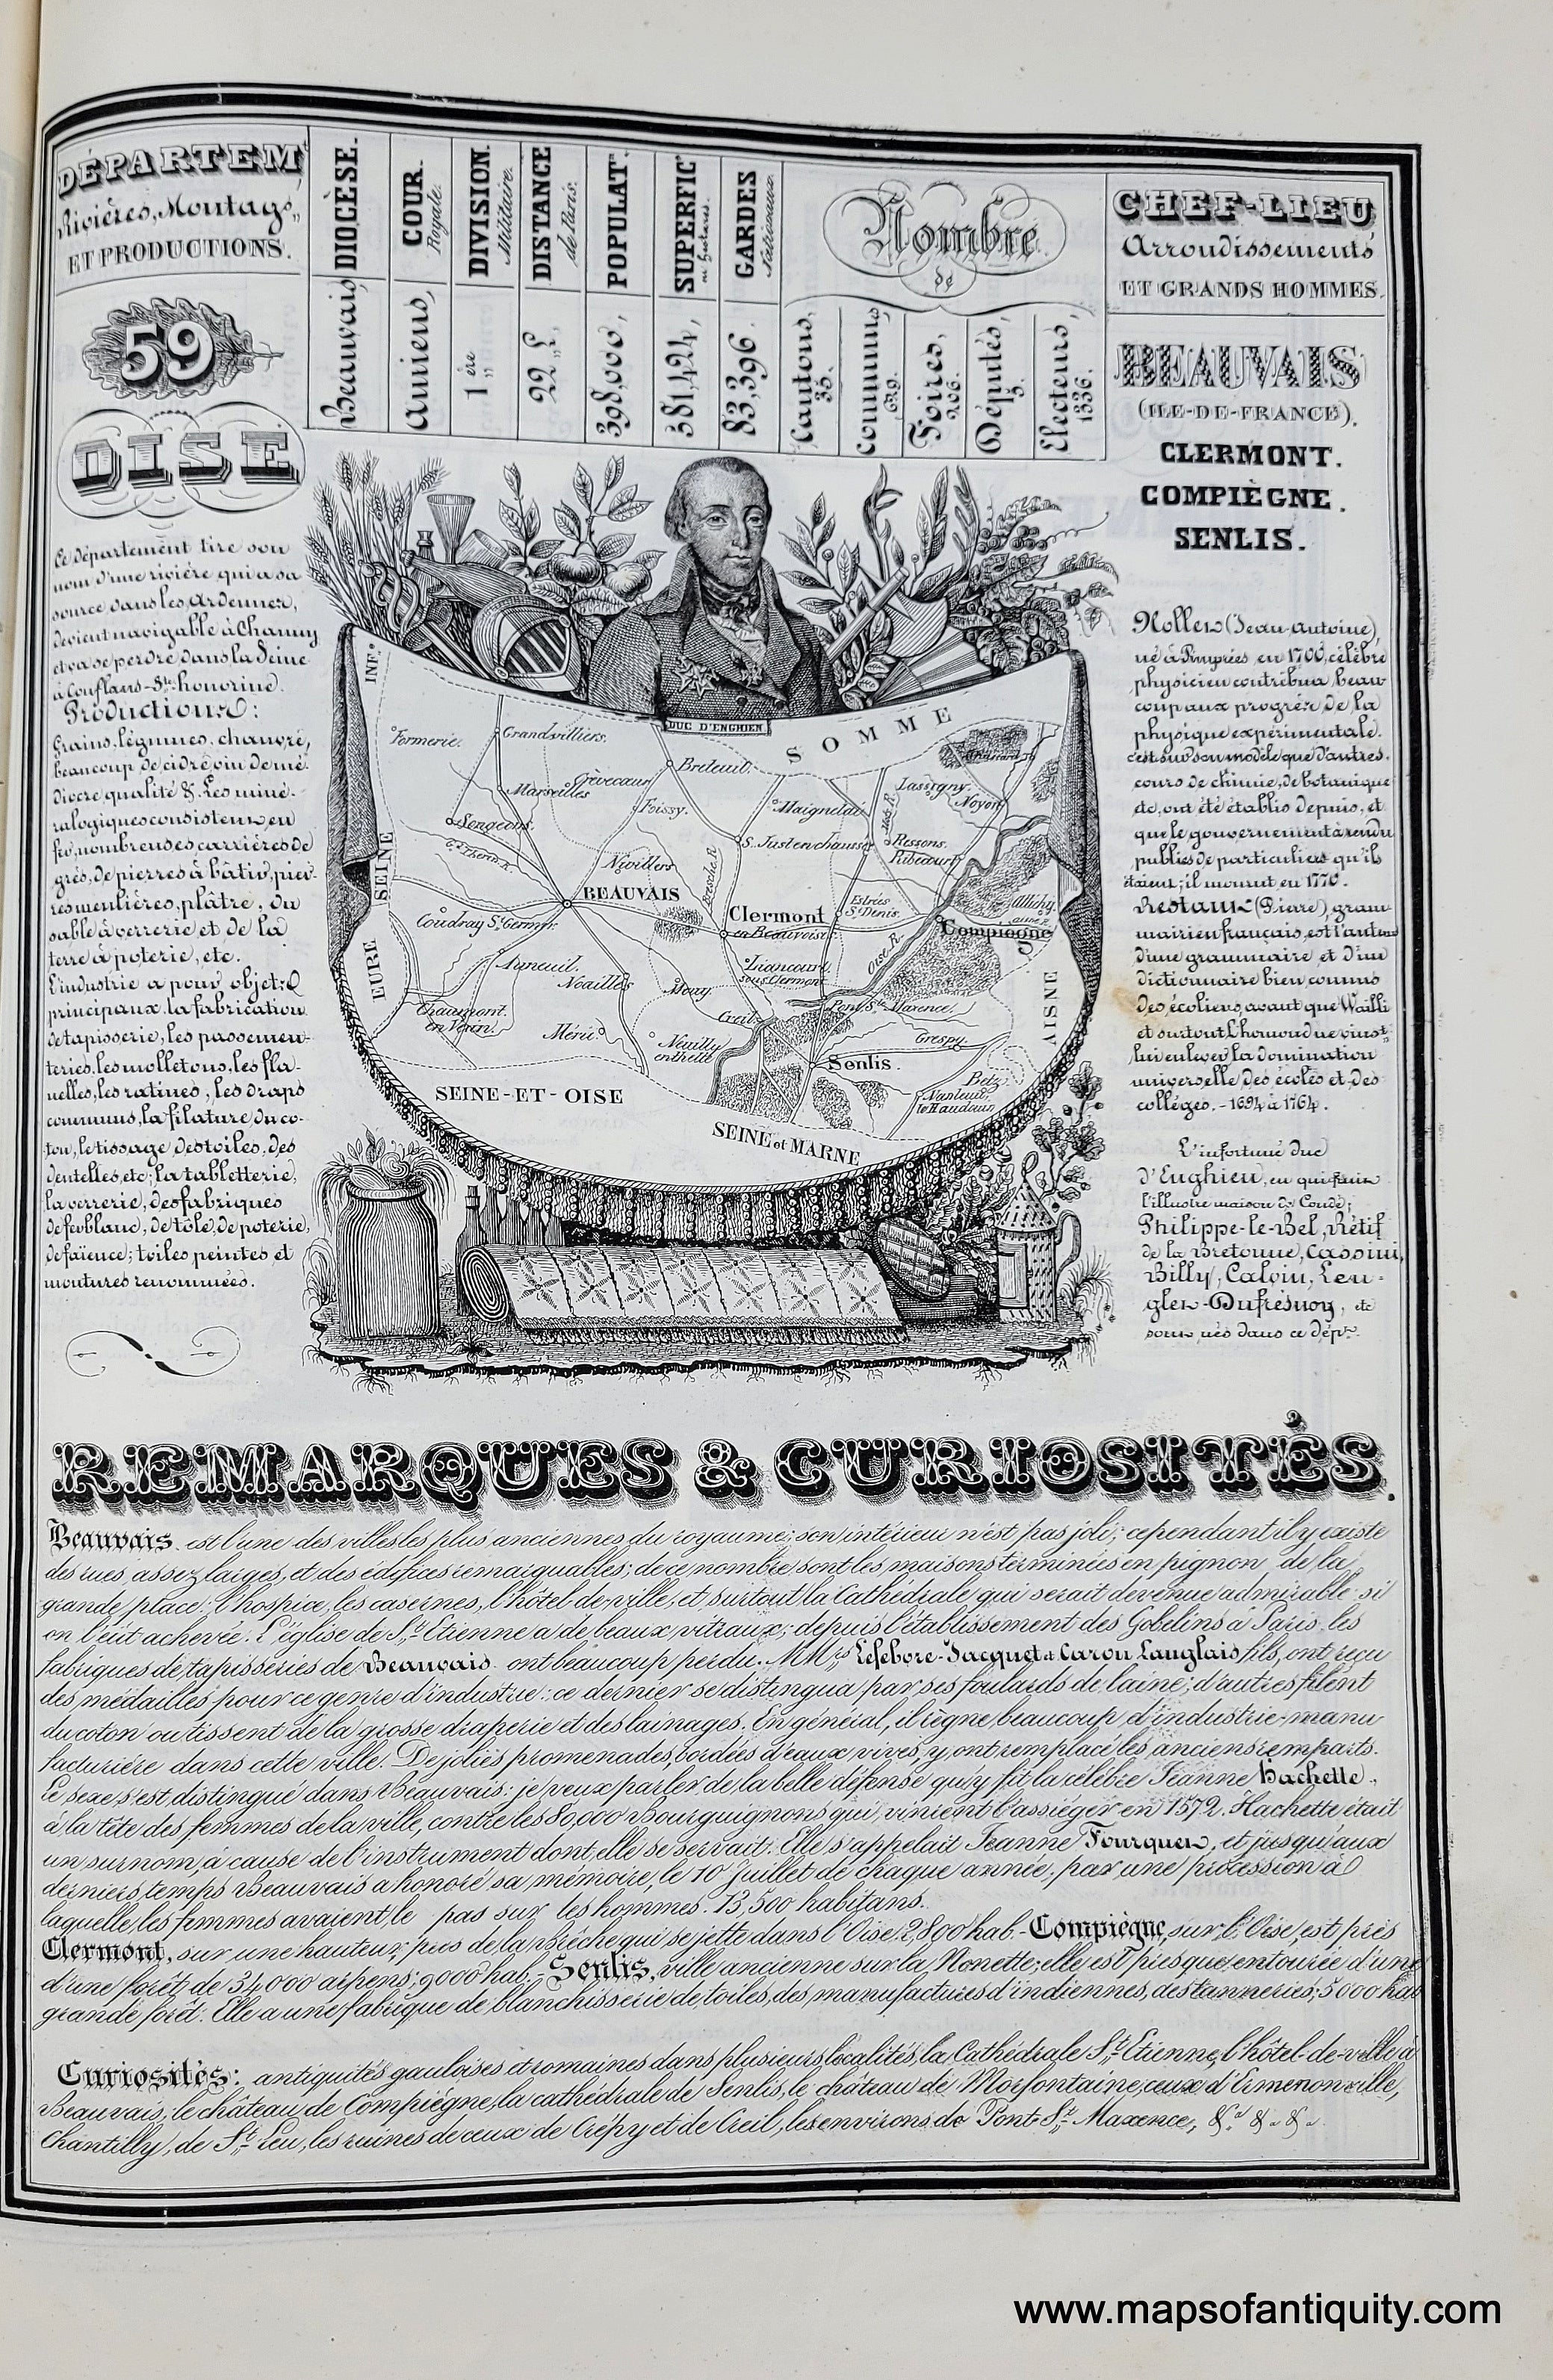 DÉPARTEM
Rivières, Montag,,
ET PRODUCTIONS.
59
OISE
DIOCÈSE.
Beauvais
COUR.
Royale.
Amiens,
DIVISION.
Militaire.
1,,ère
DISTANCE
de Paris.
22,,L
POPULAT.
398,000,
SUPERFIC
381,424,
GARDES
Nationaux.
83,396.
Nombre
de
Cantons,
35.
Communes
Foires,
206.
Députés,
5.
Electeurs,
1336.
CHEF-LIEU
Arrondissements
ET GRANDS HOMMES.
BEAUVAIS
(ILE-DE-FRANCE).
CLERMONT.
COMPIÈGNE.
SENLIS.
Ce département tire son
nom d'une rivière qui a sa
source dans les Ardennes,
devient navigable à Chauny
et va se perdre dans la Seine
à Conflans-Ste-honorine.
Productions:
Grains, légumes, chanvre,
beaucoup de cidre, vin de mé-
diocre qualité &. Les miné-
ralogiques consistent en
fer, nombreuses carrières de
grès, de pierres à bâtir, pier-
res meulières, plâtre, du
sable à verrerie et de la
terre à poterie, etc.
L'industrie a pour objets
principaux la fabrication
de tapisserie, les passemen-
teries, les molletons, les fla-
nelles, les ratines, les draps
communs, la filature du co-
ton, le tissage des toiles, des
dentelles, etc; la tabletterie,
la verrerie, des fabriques
de ferblanc, de tôle, de poterie,
de faïence; toiles peintes et
montures renommées.
DUC D'ENGHIEN
SOMME
INF.e
SEINE
EURE
AISNE
SEINE-ET-OISE
SEINE et MARNE
Formerie.
Grandvilliers.
Breteuil.
Crèvecœur
Marseilles
Foissy.
Songeons.
Maignelai
Lassigny.
Noyon
Ressons.
Ribecourt
S. Just en chaussée
Nivillers
BEAUVAIS
Clermont
en Beauvoisis
Estrées
St Denis.
Compiegne
Attichy.
Coudray St Germer.
Auneuil.
Noailles
Liancourt
sous Clermont
Mouy
Oise R.
Pont Ste Maxence.
Chaumont
en Vexin.
Méru
Neuilly
enthelle
Creil
Senlis.
Crespy.
Betz
Nanteuil
le Haudouin
Nollet (Jean-Antoine),
né à Pimprées en 1700, célèbre
physicien contribua beau-
coup aux progrès de la
physique expérimentale.
c'est sur son modèle que d'autres
cours de chimie, de botanique
etc, ont été établis depuis, et
que le gouvernement a rendu
publics de particuliers qu'ils
étaient; il mourut en 1770.
Restaut (Pierre), gram-
mairien français, est l'auteur
d'une grammaire et d'un
dictionnaire bien connus
des écoliers, avant que Wailli
et surtout Lhomond ne vinst
lui enlever la domination
universelle des écoles et des
collèges. - 1694 à 1764.
L'infortuné duc
d'Enghien, en qui finit
l'illustre maison de Condé;
Philippe-le-Bel, Rétif
de la Bretonne, Cassini,
Billy, Calvin, Len-
glet-Dufresnoy, etc
sont nés dans ce dépt.
REMARQUES & CURIOSITÈS.
Beauvais est l'une des villes les plus anciennes du royaume; son intérieur n'est pas joli; cependant il y existe
des rues assez larges, et des édifices remarquables; de ce nombre sont les maisons terminées en pignon de la
grande place; l'hospice, les casernes, l'hôtel-de-ville, et surtout la Cathédrale qui serait devenue admirable si
on l'eût achevée. L'église de St Etienne a de beaux vitraux; depuis l'établissement des Gobelins à Paris, les
fabriques de tapisseries de Beauvais ont beaucoup perdu. MMrs Lefebvre-Jacquet et Caron Langlais fils, ont reçu
des médailles pour ce genre d'industrie: ce dernier se distingua par ses foulards de laine; d'autres filent
du coton ou tissent de la grosse draperie et des lainages. En général, il règne beaucoup d'industrie manu-
facturière dans cette ville. De jolies promenades, bordées d'eaux vives, y ont remplacé les anciens remparts.
Le sexe s'est distingué dans Beauvais: je veux parler de la belle défense qu'y fit la célèbre Jeanne Hachette,
à la tête des femmes de la ville, contre les 80,000 Bourguignons qui vinrent l'assiéger en 1572. Hachette était
un surnom, à cause de l'instrument dont elle se servait. Elle s'appelait Jeanne Fourquet, et jusqu'aux
derniers temps Beauvais a honoré sa mémoire, le 10 Juillet de chaque année, par une procession à
laquelle les femmes avaient le pas sur les hommes. 13,500 habitans.
Clermont, sur une hauteur, près de la Brèche qui se jette dans l'Oise; 2,800 hab.- Compiègne, sur l'Oise, est près
d'une forêt, de 34,000 arpens; 9000 hab.- Senlis, ville ancienne sur la Nonette; elle est presque entourée d'une
grande forêt. Elle a une fabrique de blanchisserie de toiles, des manufactures d'indiennes, des tanneries; 5000 hab
Curiosités: antiquités gauloises et romaines dans plusieurs localités, la Cathédrale St Etienne, l'hôtel-de-ville à
Beauvais; le château de Compiègne, la cathédrale de Senlis, le château de Morfontaine, ceux d'Ermenonville,
Chantilly, de St Leu, les ruines de ceux de Crépy et de Creil, les environs de Pont Ste Maxence, &.a &. &.
www.mapsofantiquity.com